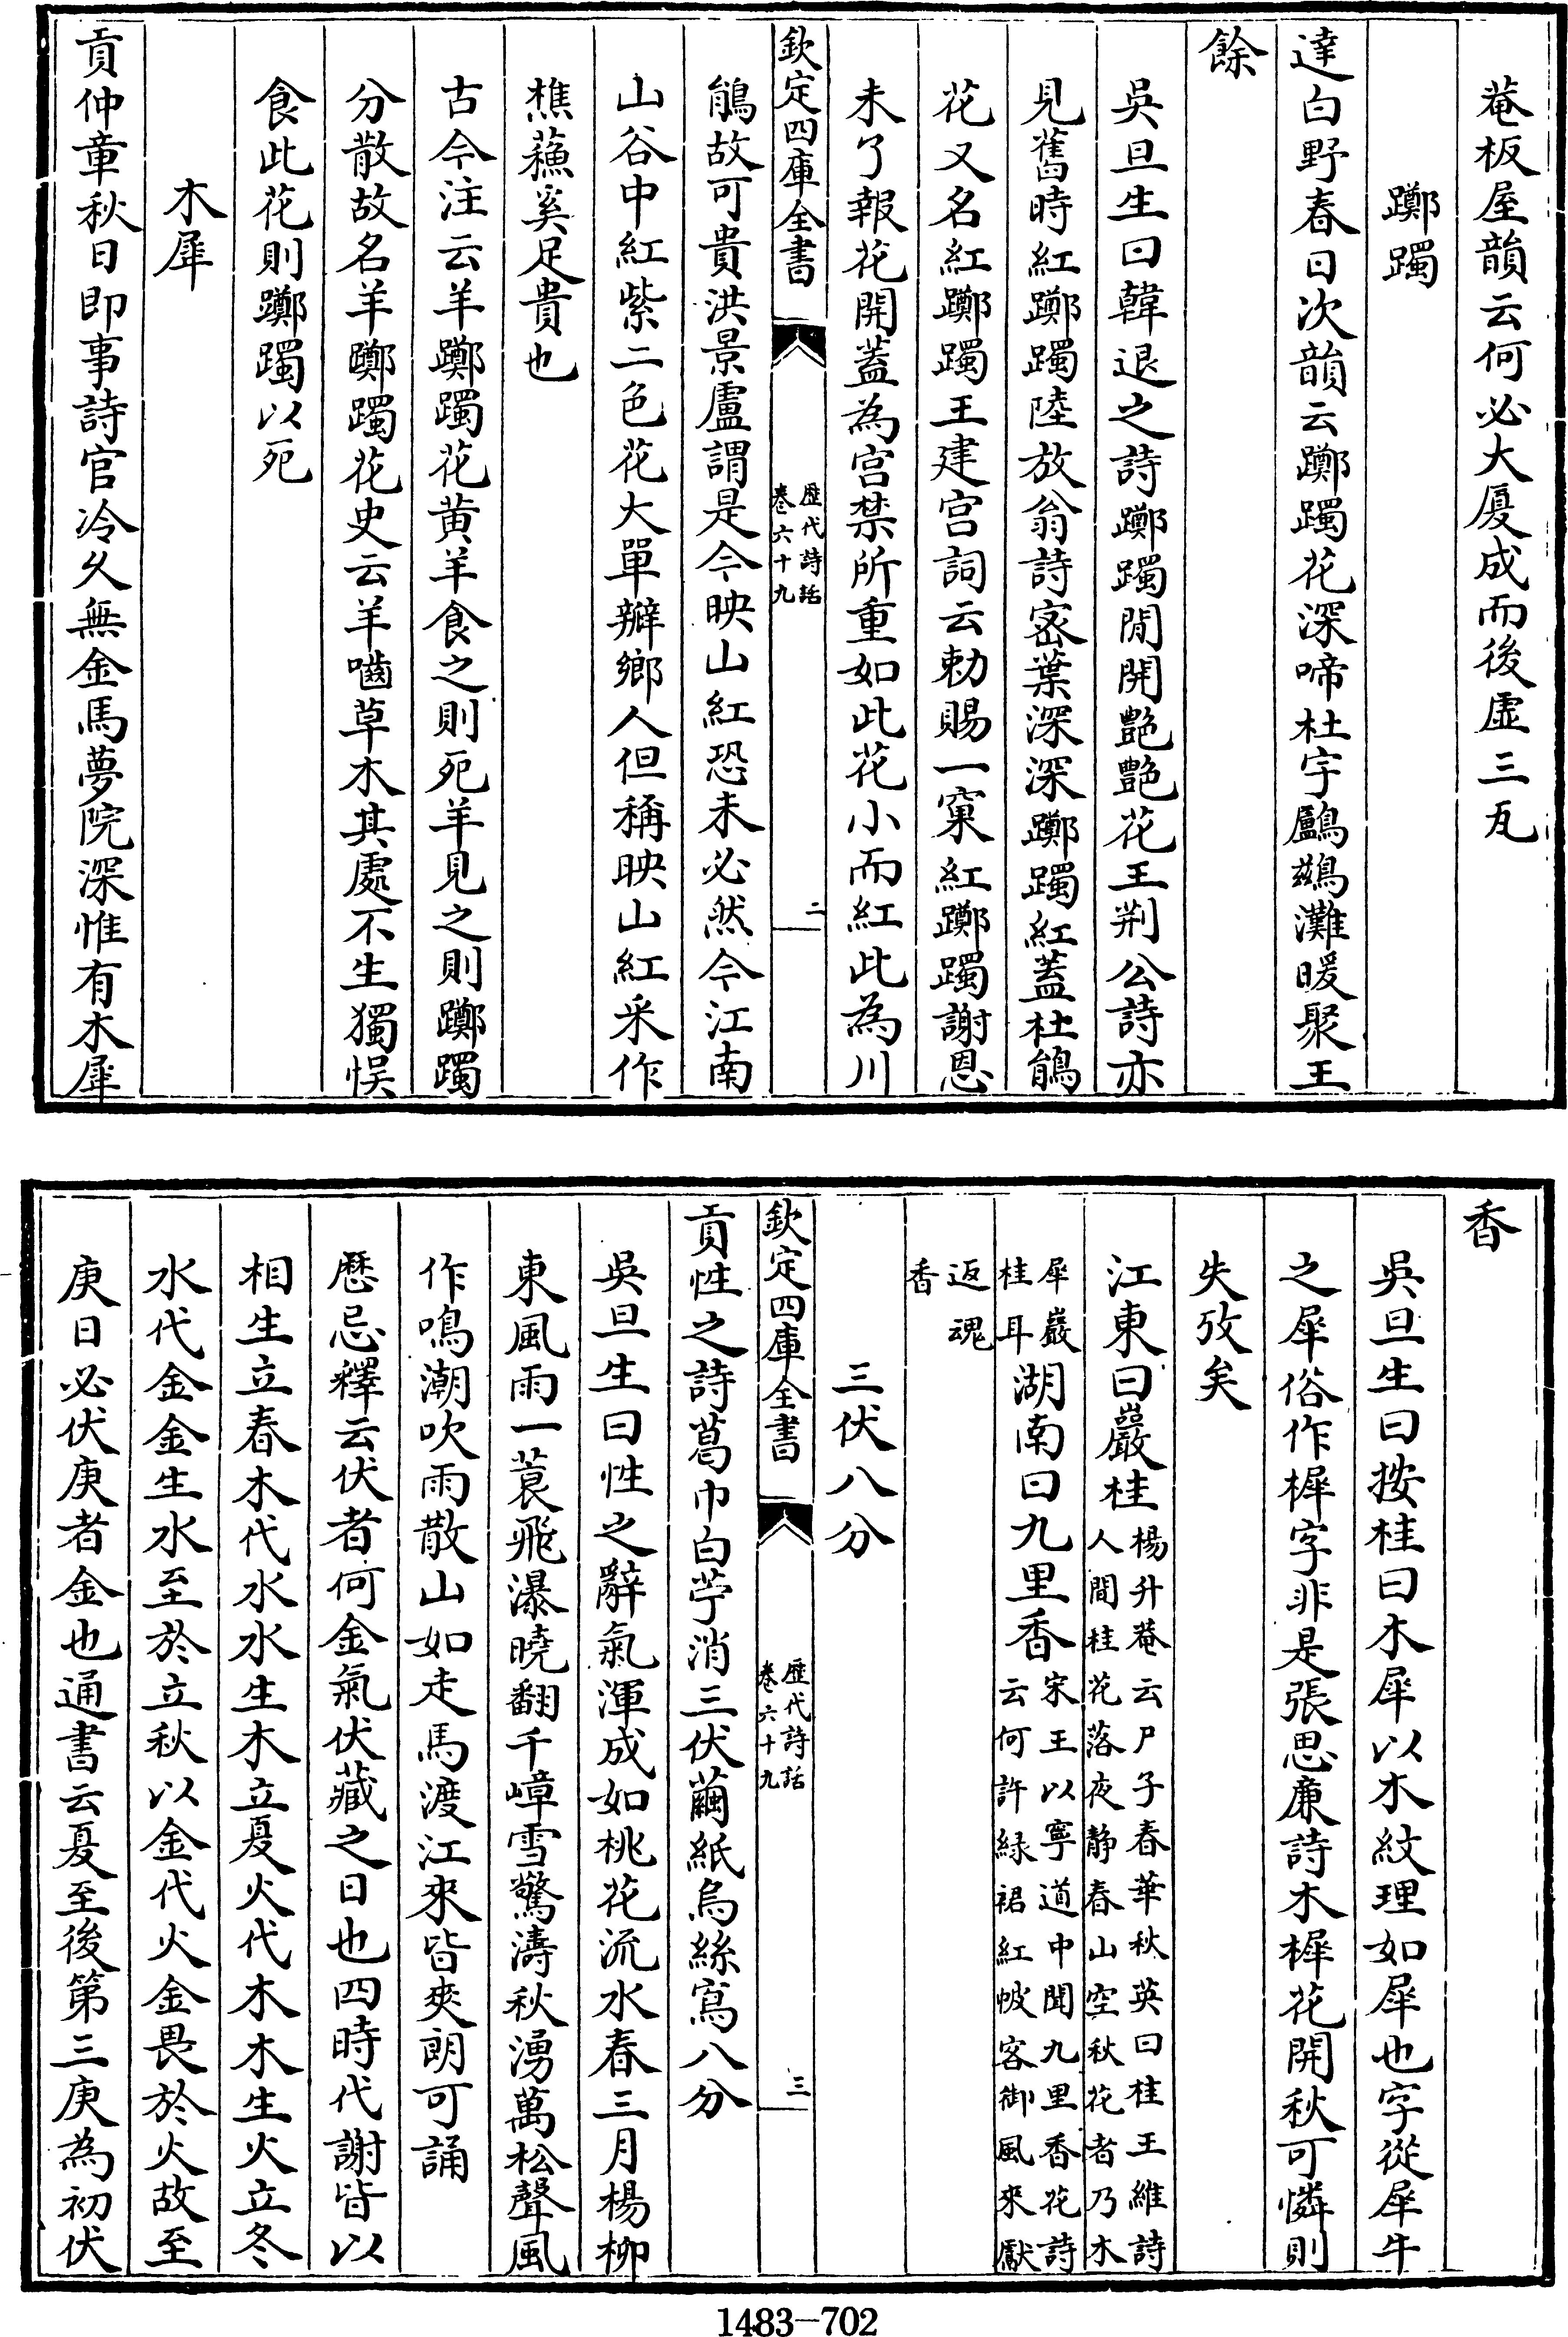 菴板屋韻云何必大厦成而後虚三瓦
躑躅
達白野春日次韻云躑躅花深啼杜宇鸕鷀灘暖聚王
餘
吳旦生曰韓退之詩躑躅閒開艷艷花王荆公詩亦
見舊時紅躑躅陸放翁詩宻葉深深躑躅紅蓋杜鵑
花又名紅躑躅王建宫詞云勅賜一窠紅躑躅謝恩
未了報花開蓋為宫禁所重如此花小而紅此為川
欽定四庫全書
歴代詩話
卷六十九
二
鵑故可貴洪景盧謂是今映山紅恐未必然今江南
山谷中紅紫二色花大單瓣鄉人但稱映山紅采作
樵蘓奚足貴也
古今注云羊躑躅花黄羊食之則死羊見之則躑躅
分散故名羊躑躅花史云羊嚙草木其處不生獨悞
食此花則躑躅以死
木犀
貢仲章秋日即事詩官冷久無金馬夢院深惟有木犀
香
吳旦生曰按桂曰木犀以木紋理如犀也字從犀牛
之犀俗作樨字非是張思亷詩木樨花開秋可憐則
失攷矣
江東曰巖桂楊升菴云尸子春華秋英曰桂王維詩
人間桂花落夜静春山空秋花者乃木
犀巖
桂耳湖南曰九里香宋王以寧道中聞九里香花詩
云何許緑裙紅帔客御風來獻
返魂
香
三伏八分
貢性之詩葛巾白苧消三伏繭紙烏絲寫八分
欽定四庫全書
歴代詩話
卷六十九
三
吳旦生曰性之辭氣渾成如桃花流水春三月楊柳
東風雨一蓑飛瀑曉翻千嶂雪驚濤秋湧萬松聲風
作鳴潮吹雨散山如走馬渡江來皆爽朗可誦
歴忌釋云伏者何金氣伏藏之日也四時代謝皆以
相生立春木代水水生木立夏火代木木生火立冬
水代金金生水至於立秋以金代火金畏於火故至
庚日必伏庚者金也通書云夏至後第三庚為初伏
1483—702